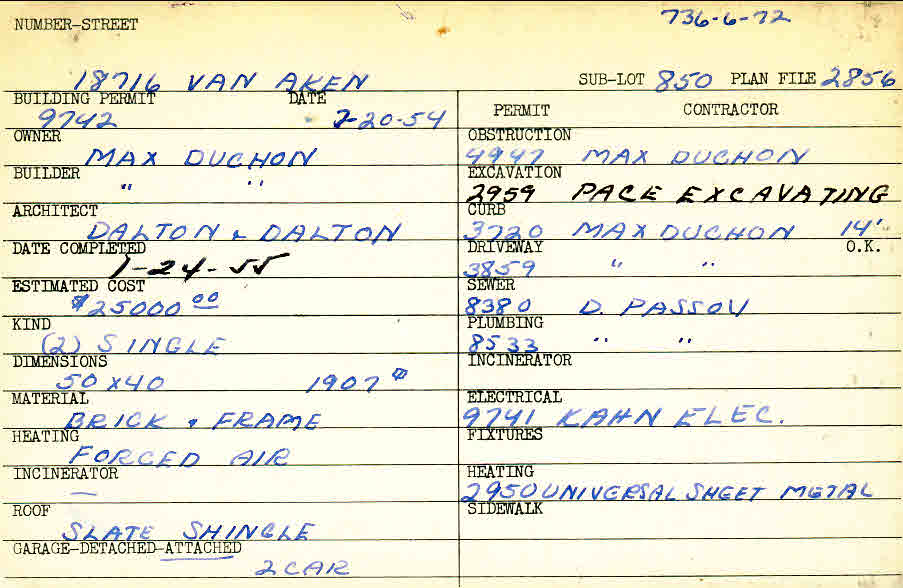 NUMBER-STREET
736-6-72
18716 VAN AKEN
SUB-LOT 850 PLAN FILE 2856
BUILDING PERMIT DATE
9742 7-20-54
OWNER
MAX DUCHON
BUILDER
" "
ARCHITECT
DALTON & DALTON
DATE COMPLETED
1-24-55
ESTIMATED COST
$25000 00
KIND
(2) SINGLE
DIMENSIONS
50 x 40 1907 #
MATERIAL
BRICK & FRAME
HEATING
FORCED AIR
INCINERATOR
—
ROOF
SLATE SHINGLE
GARAGE-DETACHED-ATTACHED
2 CAR
PERMIT CONTRACTOR
OBSTRUCTION
4947 MAX DUCHON
EXCAVATION
2959 PACE EXCAVATING
CURB
3720 MAX DUCHON 14'
DRIVEWAY O.K.
3859 " "
SEWER
8380 D. PASSOV
PLUMBING
8533 " "
INCINERATOR
ELECTRICAL
9741 KAHN ELEC.
FIXTURES
HEATING
2950 UNIVERSAL SHEET METAL
SIDEWALK